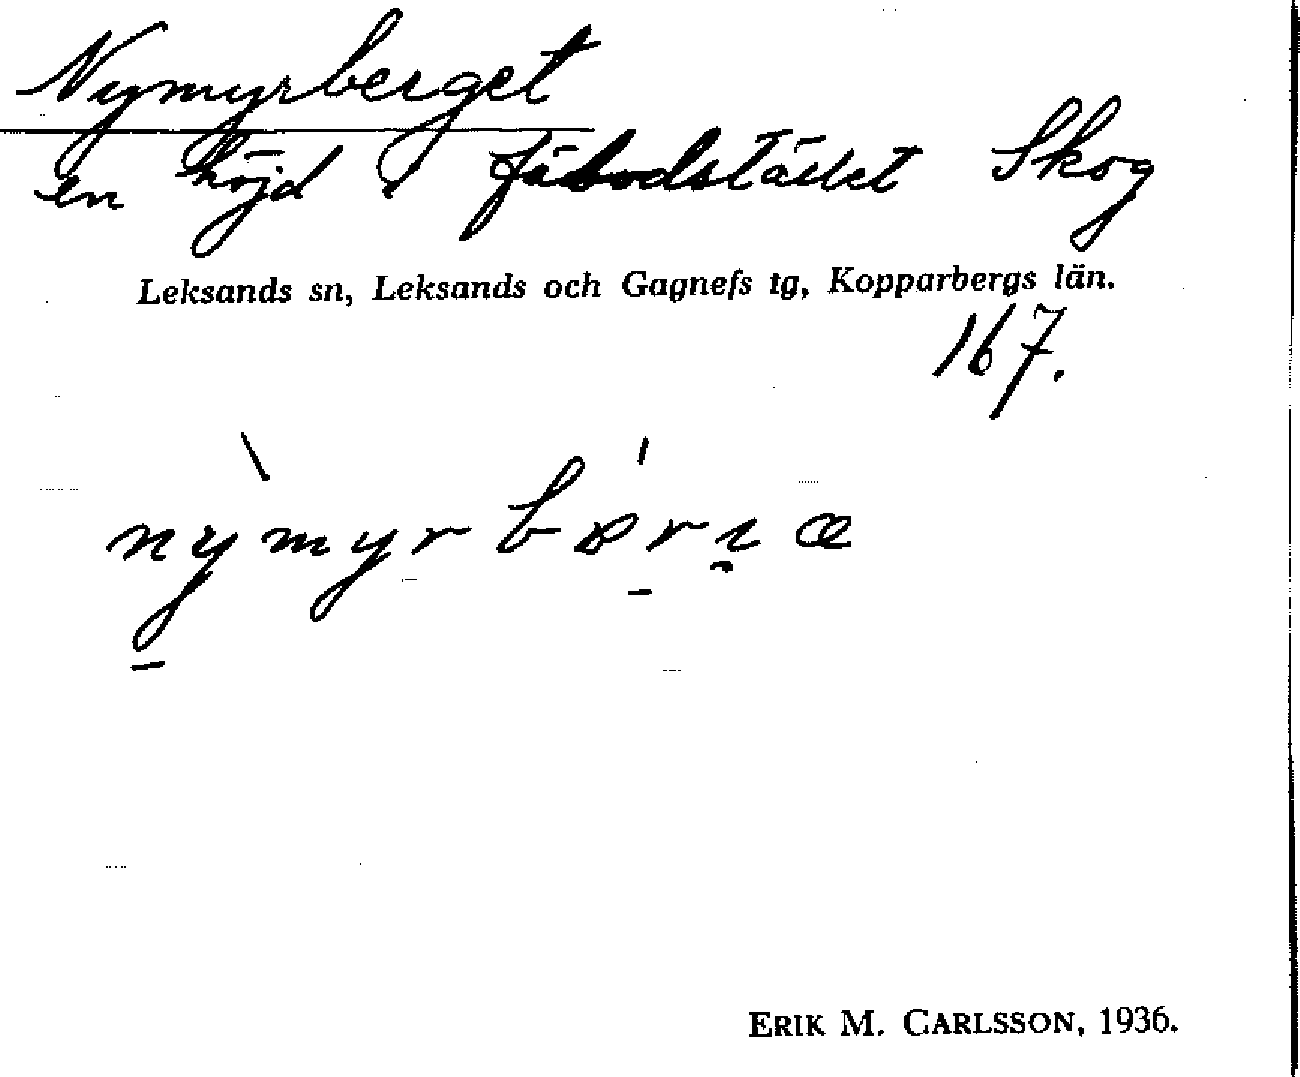 Nymyrberget
en höjd i fäbodstället Skog
Leksands sn, Leksands och Gagnefs tg, Kopparbergs län.
167.
ERIK M. CARLSSON, 1936.